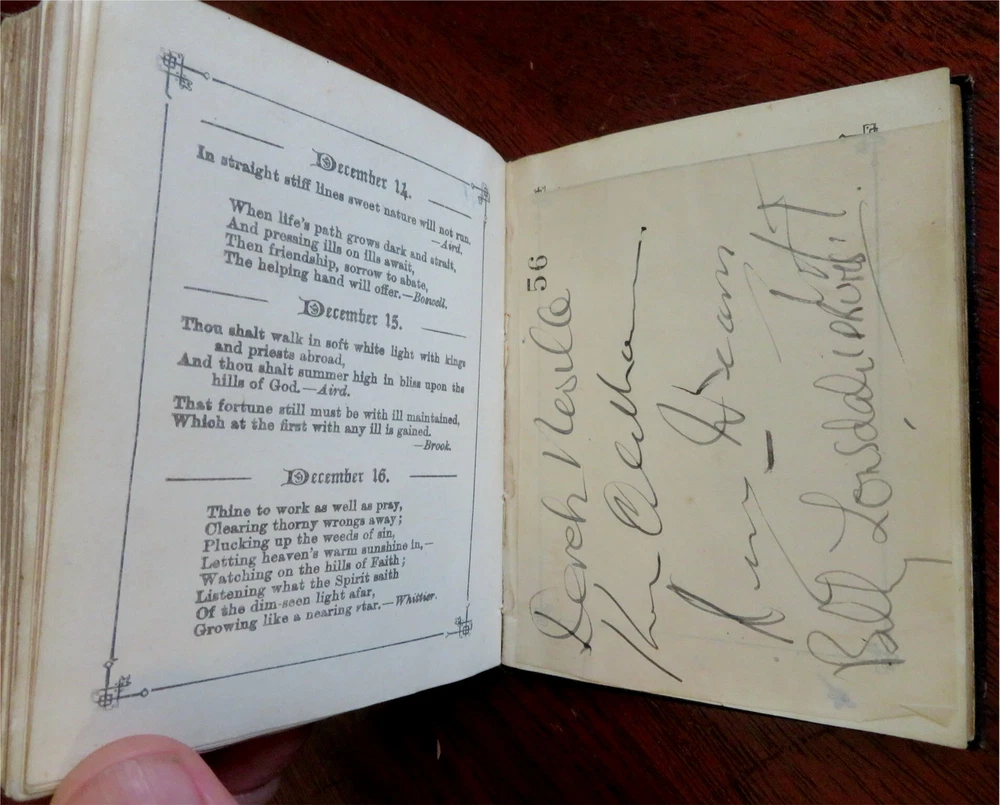 December 14.
In straight stiff lines sweet nature will not run.
—Aird.
When life's path grows dark and strait,
And pressing ills on ills await,
Then friendship, sorrow to abate,
The helping hand will offer.—Bonwell.
December 15.
Thou shalt walk in soft white light with kings
and priests abroad,
And thou shalt summer high in bliss upon the
hills of God.—Aird.
That fortune still must be with ill maintained,
Which at the first with any ill is gained.
—Brook.
December 16.
Thine to work as well as pray,
Clearing thorny wrongs away;
Plucking up the weeds of sin,
Letting heaven's warm sunshine in,—
Watching on the hills of Faith;
Listening what the Spirit saith
Of the dim-seen light afar,
Growing like a nearing star.—Whittier.
56
Derek Neville
Billy